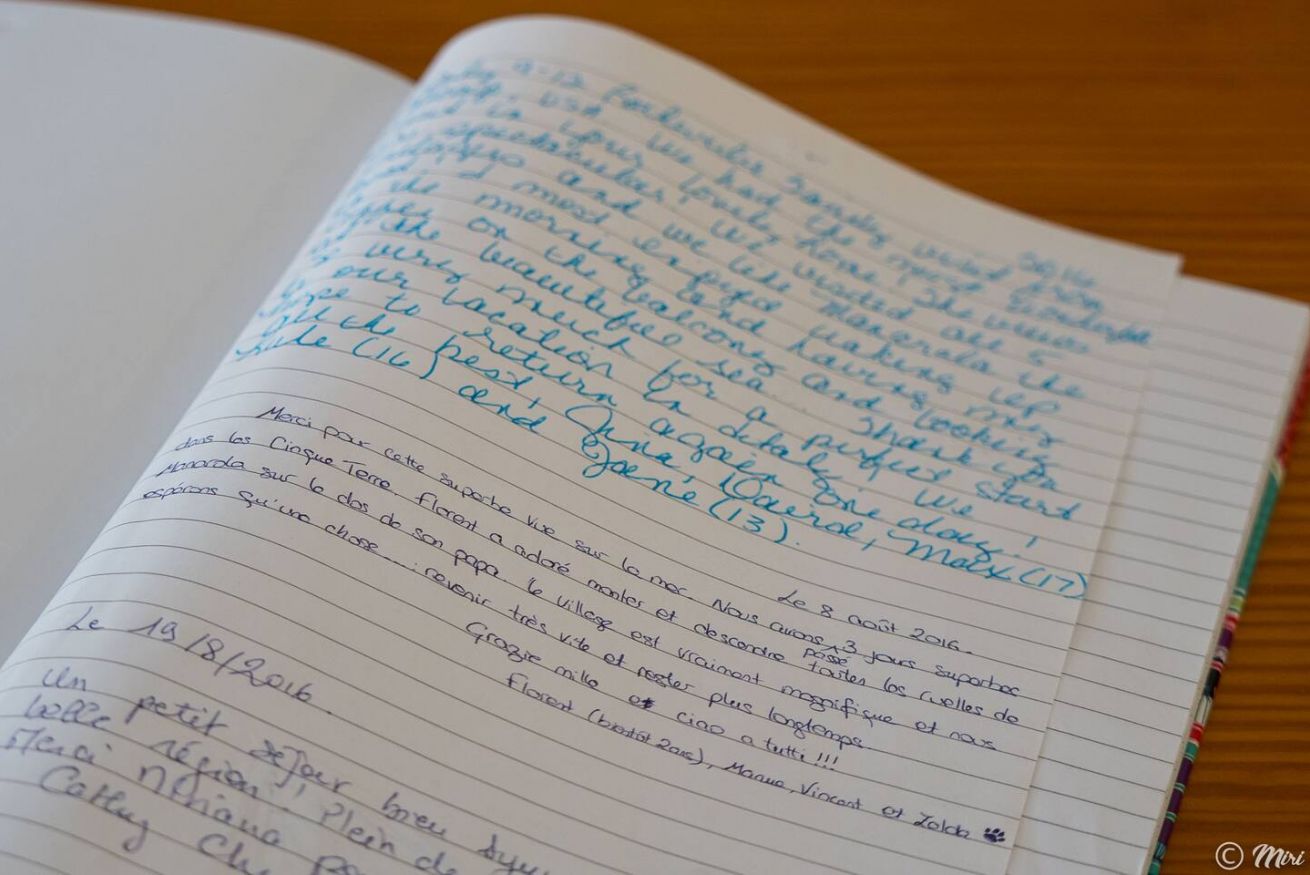 9-12
USA We had the most wonderful
in your lovely home. The view
spectacular. We visited all 5
and we like Manarola the
most. We enjoyed waking up
the morning and having
on the balcony and looking
the beautiful sea... Thank you
very much for a perfect start
our vacation in Italy. We
hope to return again one day!
All the best, Nina, Max (17)
(16) and (13).
Le 8 août 2016.
Merci pour cette superbe vue sur la mer. Nous avons passé 3 jours superbes
dans les Cinque Terre. Florent a adoré monter et descendre toutes les ruelles de
Manarola sur le dos de son papa. Le village est vraiment magnifique et nous
espérons qu'une chose.... revenir très vite et rester plus longtemps.
Grazie mille et ciao a tutti !!!
Florent (bientôt 2 ans), Manue, Vincent et Zelda
Le 19/8/2016.
Un petit séjour bien
belle région! Plein de
Merci
Cathy
© Miri